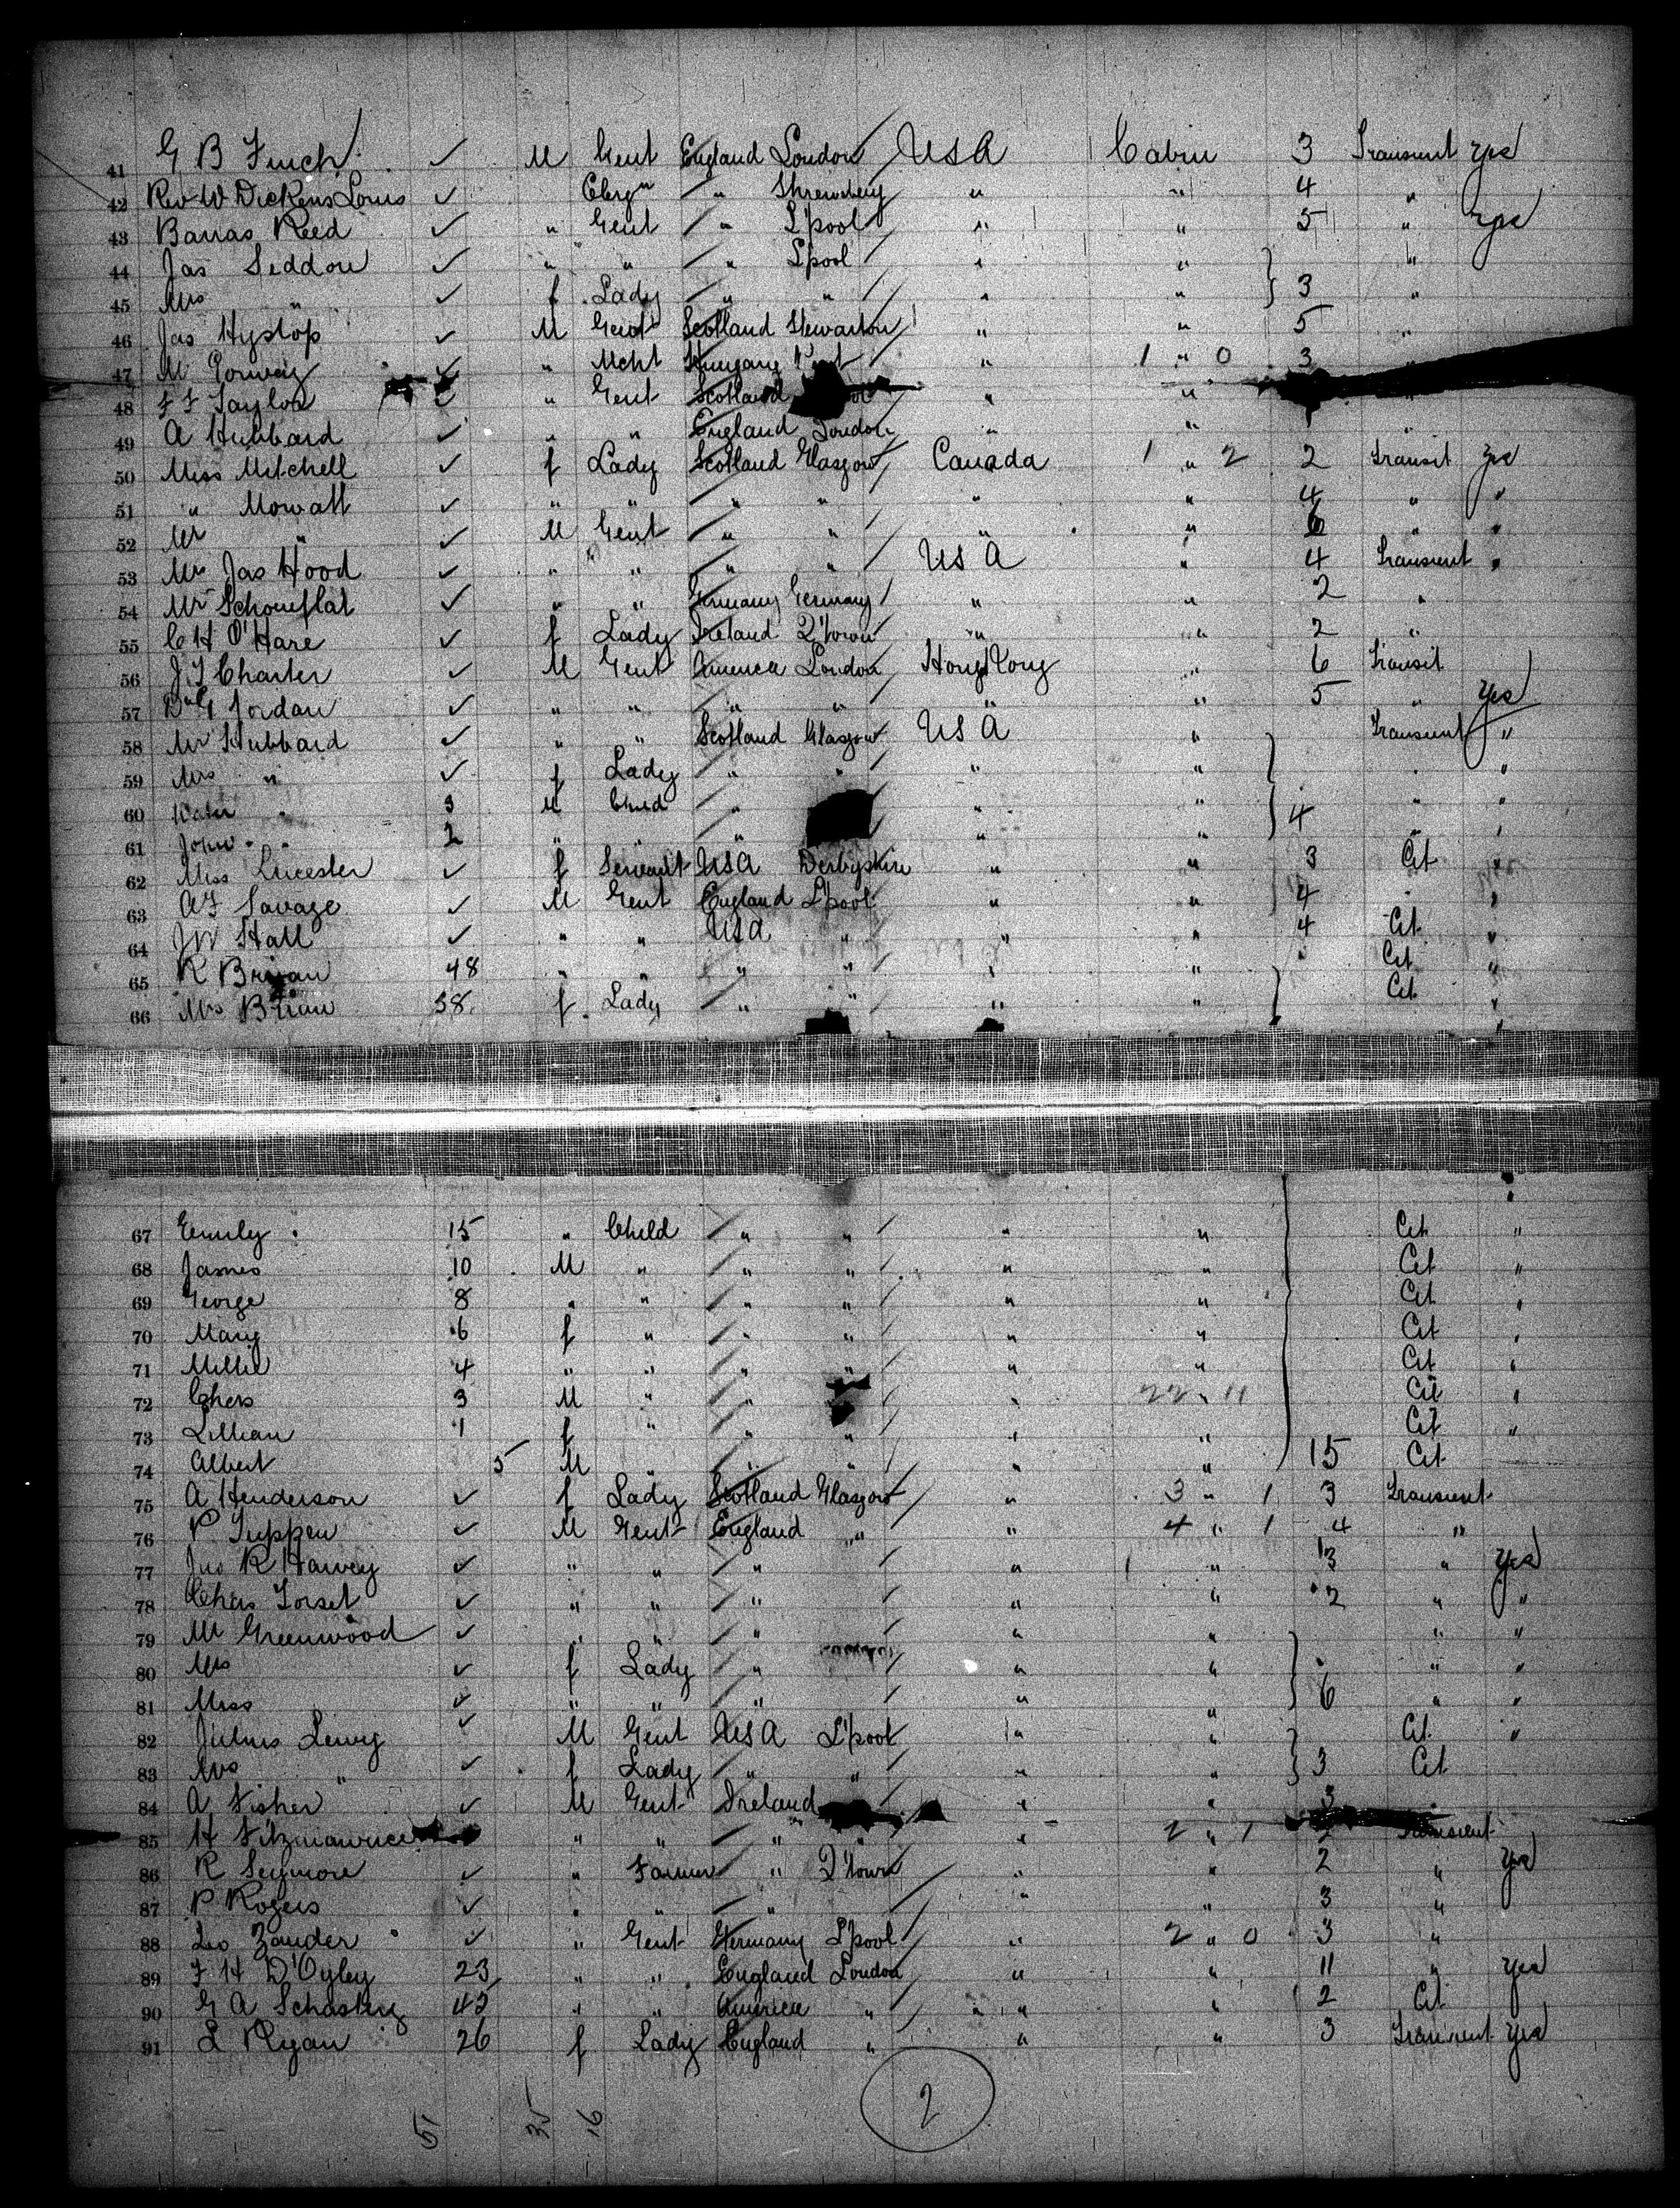 41 G B Finch ✓ M Gent England London USA Cabin 3 Transient yes
42 Rev W Dickens Louis ✓ Clergn " Shrewsbury " " 4 "
43 Barras Reed ✓ " Gent " L'pool " " 5 " yes
44 Jas Seddon ✓ " " " L'pool " " "
45 Mrs " ✓ f Lady " " " " 3 "
46 Jas Hyslop ✓ M Gent Scotland Stewarton " " 5 "
47 M ✓ " Mcht Hungary " 1 " 0 3
48 F F Taylor ✓ " Gent Scotland " "
49 A Hubbard ✓ " " England London " " "
50 Miss Mitchell ✓ f Lady Scotland Glasgow Canada 1 " 2 2 Transit yes
51 " Mowatt ✓ " " " " " " 4 " "
52 Mr " ✓ M Gent " " " " 6 " "
53 Jas Hood ✓ " " " " USA " 4 Transient "
54 Mr Schoneflat ✓ " " Germany Germany " " 2 "
55 C H O'Hare ✓ f Lady Ireland Q'town " " 2 "
56 J T Charter ✓ M Gent America London Hong Kong " 6 Transit
57 Jordan ✓ " " " " " " 5 " Yes
58 Mr Hubbard ✓ " " Scotland Glasgow USA " Transient "
59 Mrs " ✓ f Lady " " " " " "
60 " 3 M Child " " " 4 " "
61 John " 2 " " " " " " "
62 Miss Leicester ✓ f Servant USA Derbyshire " " 3 Cit "
63 A F Savage ✓ M Gent England L'pool " " 4 " "
64 J W Hall ✓ " " USA " " " 4 Cit "
65 R Brian 48 " " " " " " Cit "
66 Mrs Brian 38 f Lady " " " " Cit "
67 Emily " 15 " Child " " " " Cit "
68 James 10 M " " " " " Cit "
69 George 8 " " " " " " Cit "
70 Mary 6 f " " " " " Cit "
71 Millie 4 " " " " " " Cit "
72 Chas 3 M " " " 22 " 11 Cit "
73 Lillian 1 f " " " " " Cit "
74 Albert 5 M " " " " " 15 Cit
75 A Henderson ✓ f Lady Scotland Glasgow " 3 " 1 3 Transient
76 P Tuppen ✓ M Gent England " " 4 " 1 4 "
77 Jno R Harvey ✓ " " " " 1 " 3 " yes
78 Chas Forset ✓ " " " " " 2 " "
79 Mr Greenwood ✓ " " " " " " "
80 Mrs ✓ f Lady " " " " "
81 Miss ✓ " " " " " 6 " "
82 Julius Levy ✓ M Gent USA L'pool " " Cit "
83 Mrs " ✓ f Lady " " " " 3 Cit
84 A Fisher ✓ M Gent Ireland " " 3
85 H Fitzmaurice " " " " " 2 " 1 2 Transient
86 R Seymore ✓ " Farmer " Q'town " " 2 " yes
87 P Rogers ✓ " " " " " 3 "
88 Leo Zander ✓ " Gent Germany L'pool " 2 " 0 3 "
89 F H D'Oyley 23 " " England London " " 11 " yes
90 G A 42 " " America " " " 2 Cit
91 L Ryan 26 f Lady England " " " 3 Transient yes
51 35 16 2